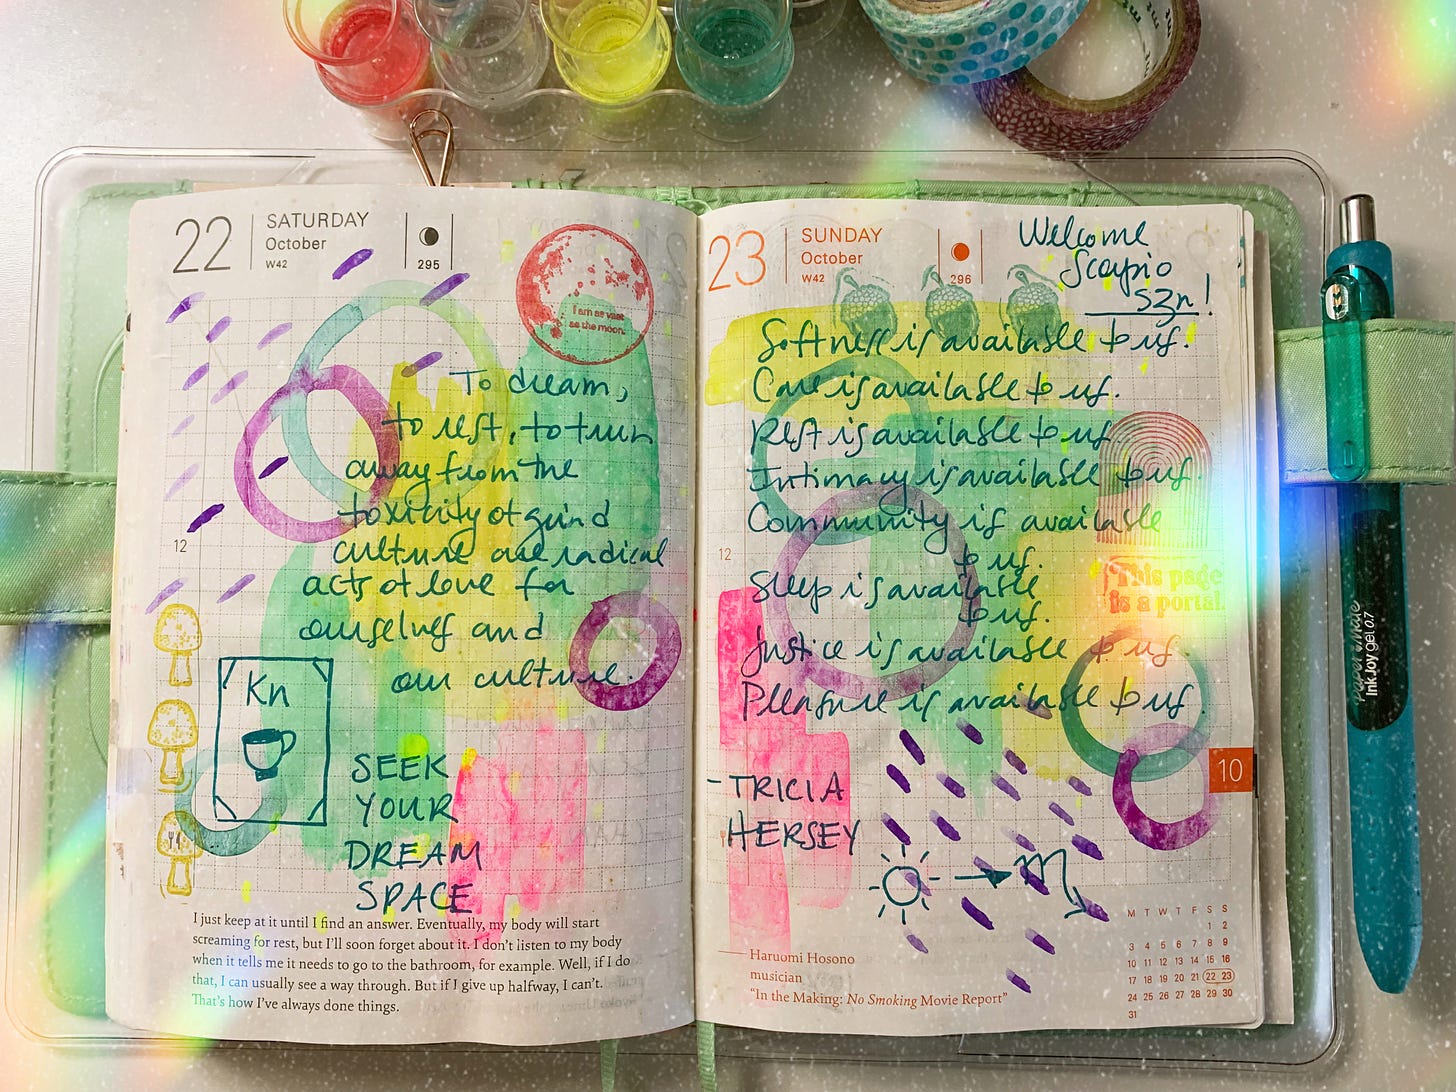 22
SATURDAY
October
W42
295
I am as vast
as the moon.
To dream,
to rest, to turn
away from the
toxicity of grind
culture are radical
acts of love for
ourselves and
our culture.
12
Kn
SEEK
YOUR
DREAM
SPACE
I just keep at it until I find an answer. Eventually, my body will start
screaming for rest, but I'll soon forget about it. I don't listen to my body
when it tells me it needs to go to the bathroom, for example. Well, if I do
that, I can usually see a way through. But if I give up halfway, I can't.
That's how I've always done things.
23
SUNDAY
October
W42
296
Welcome
Scorpio
szn!
Softness is available to us.
Care is available to us.
Rest is available to us.
Intimacy is available to us.
Community is available
to us.
Sleep is available
to us.
Justice is available to us.
Pleasure is available to us.
12
This page
is a portal.
- TRICIA
HERSEY
10
Haruomi Hosono
musician
"In the Making: No Smoking Movie Report"
M T W T F S S
1 2
3 4 5 6 7 8 9
10 11 12 13 14 15 16
17 18 19 20 21 22 23
24 25 26 27 28 29 30
31
Paper Mate
InkJoy gel 0.7
mt